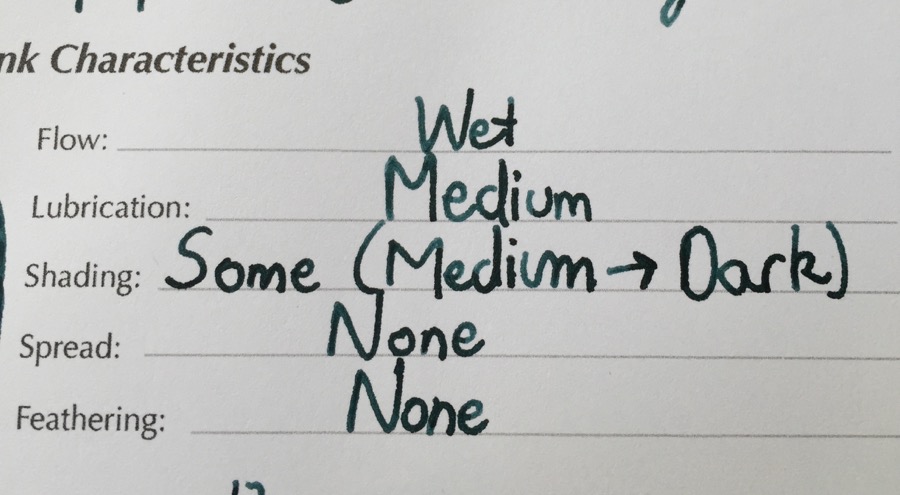 nk Characteristics
Flow: Wet
Lubrication: Medium
Shading: Some (Medium → Dark)
Spread: None
Feathering: None